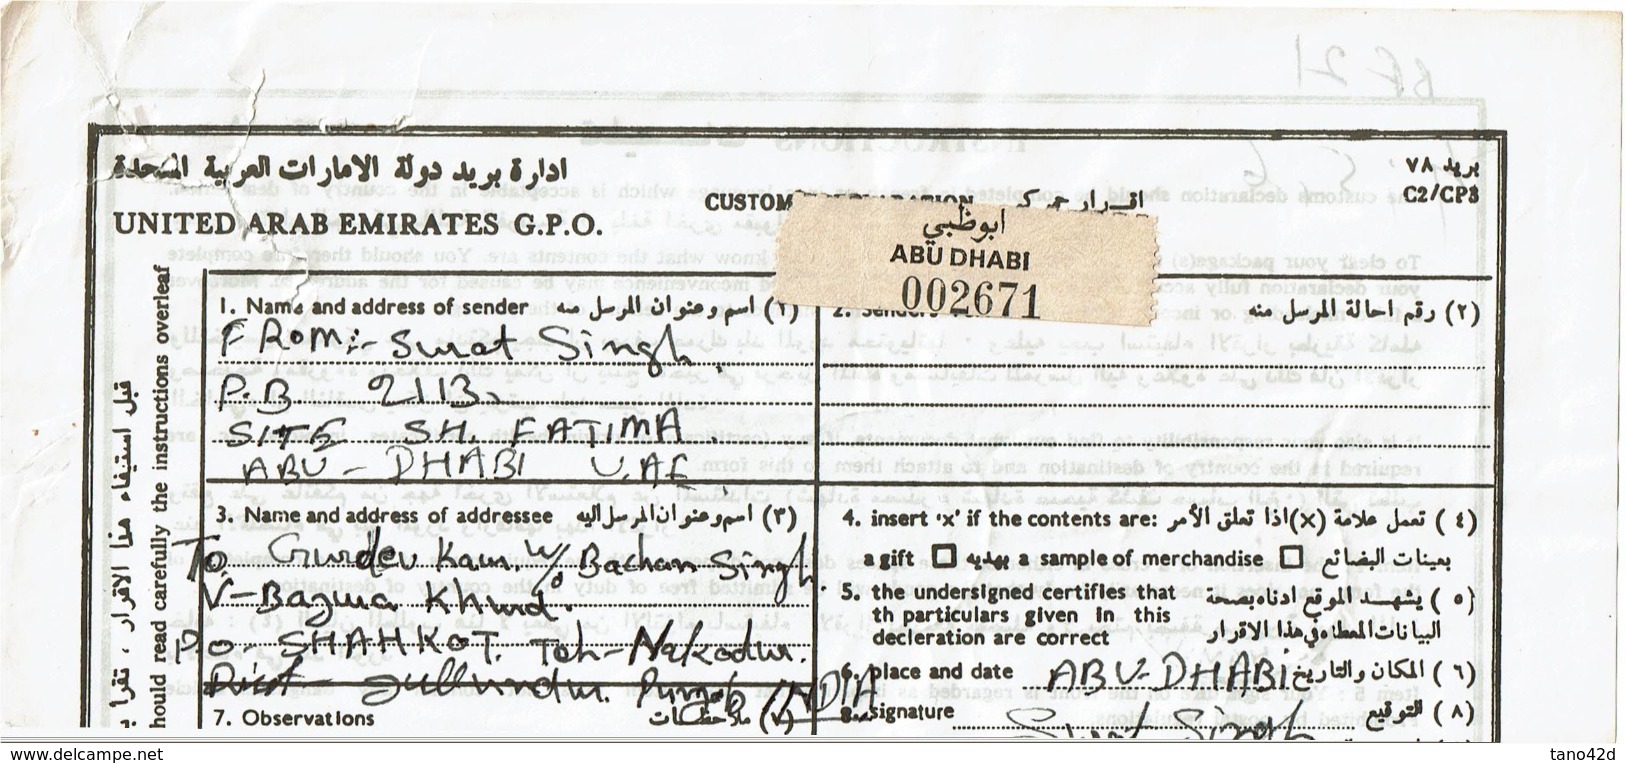 ادارة بريد دولة الامارات العربية المتحدة
UNITED ARAB EMIRATES G.P.O.
بريد ٧٨
C2/CP3
CUSTOM
ابوظبي
ABU DHABI
002671
قبل استيفاء هذا الاقرار ، تقرأ
hould read carefully the instructions overleaf
1. Name and address of sender (١) اسم وعنوان المرسل منه
FROM:- Surat Singh
P.B 2113.
SITE SH. FATIMA.
ABU-DHABI U.A.E
(٢) رقم احالة المرسل منه
3. Name and address of addressee (٣) اسم وعنوان المرسل اليه
To Gurdev Kaur w/o Bachan Singh
V-Bagwa Khurd.
P.O-SHAHKOT. Teh-Nakodur.
Dist- Jullundur. Punjab INDIA
4. insert 'x' if the contents are: (٤) تعمل علامة (x) اذا تعلق الأمر
a gift بهديه a sample of merchandise بعينات البضائع
5. the undersigned certifies that (٥) يشهد الموقع ادناه بصحة
th particulars given in this البيانات المعطاه في هذا الاقرار
decleration are correct
6. place and date ABU-DHABI. (٦) المكان والتاريخ
7. Observations (٧) ملاحظات
8. signature Surat Singh (٨) التوقيع
www.delcampe.net
tano42d